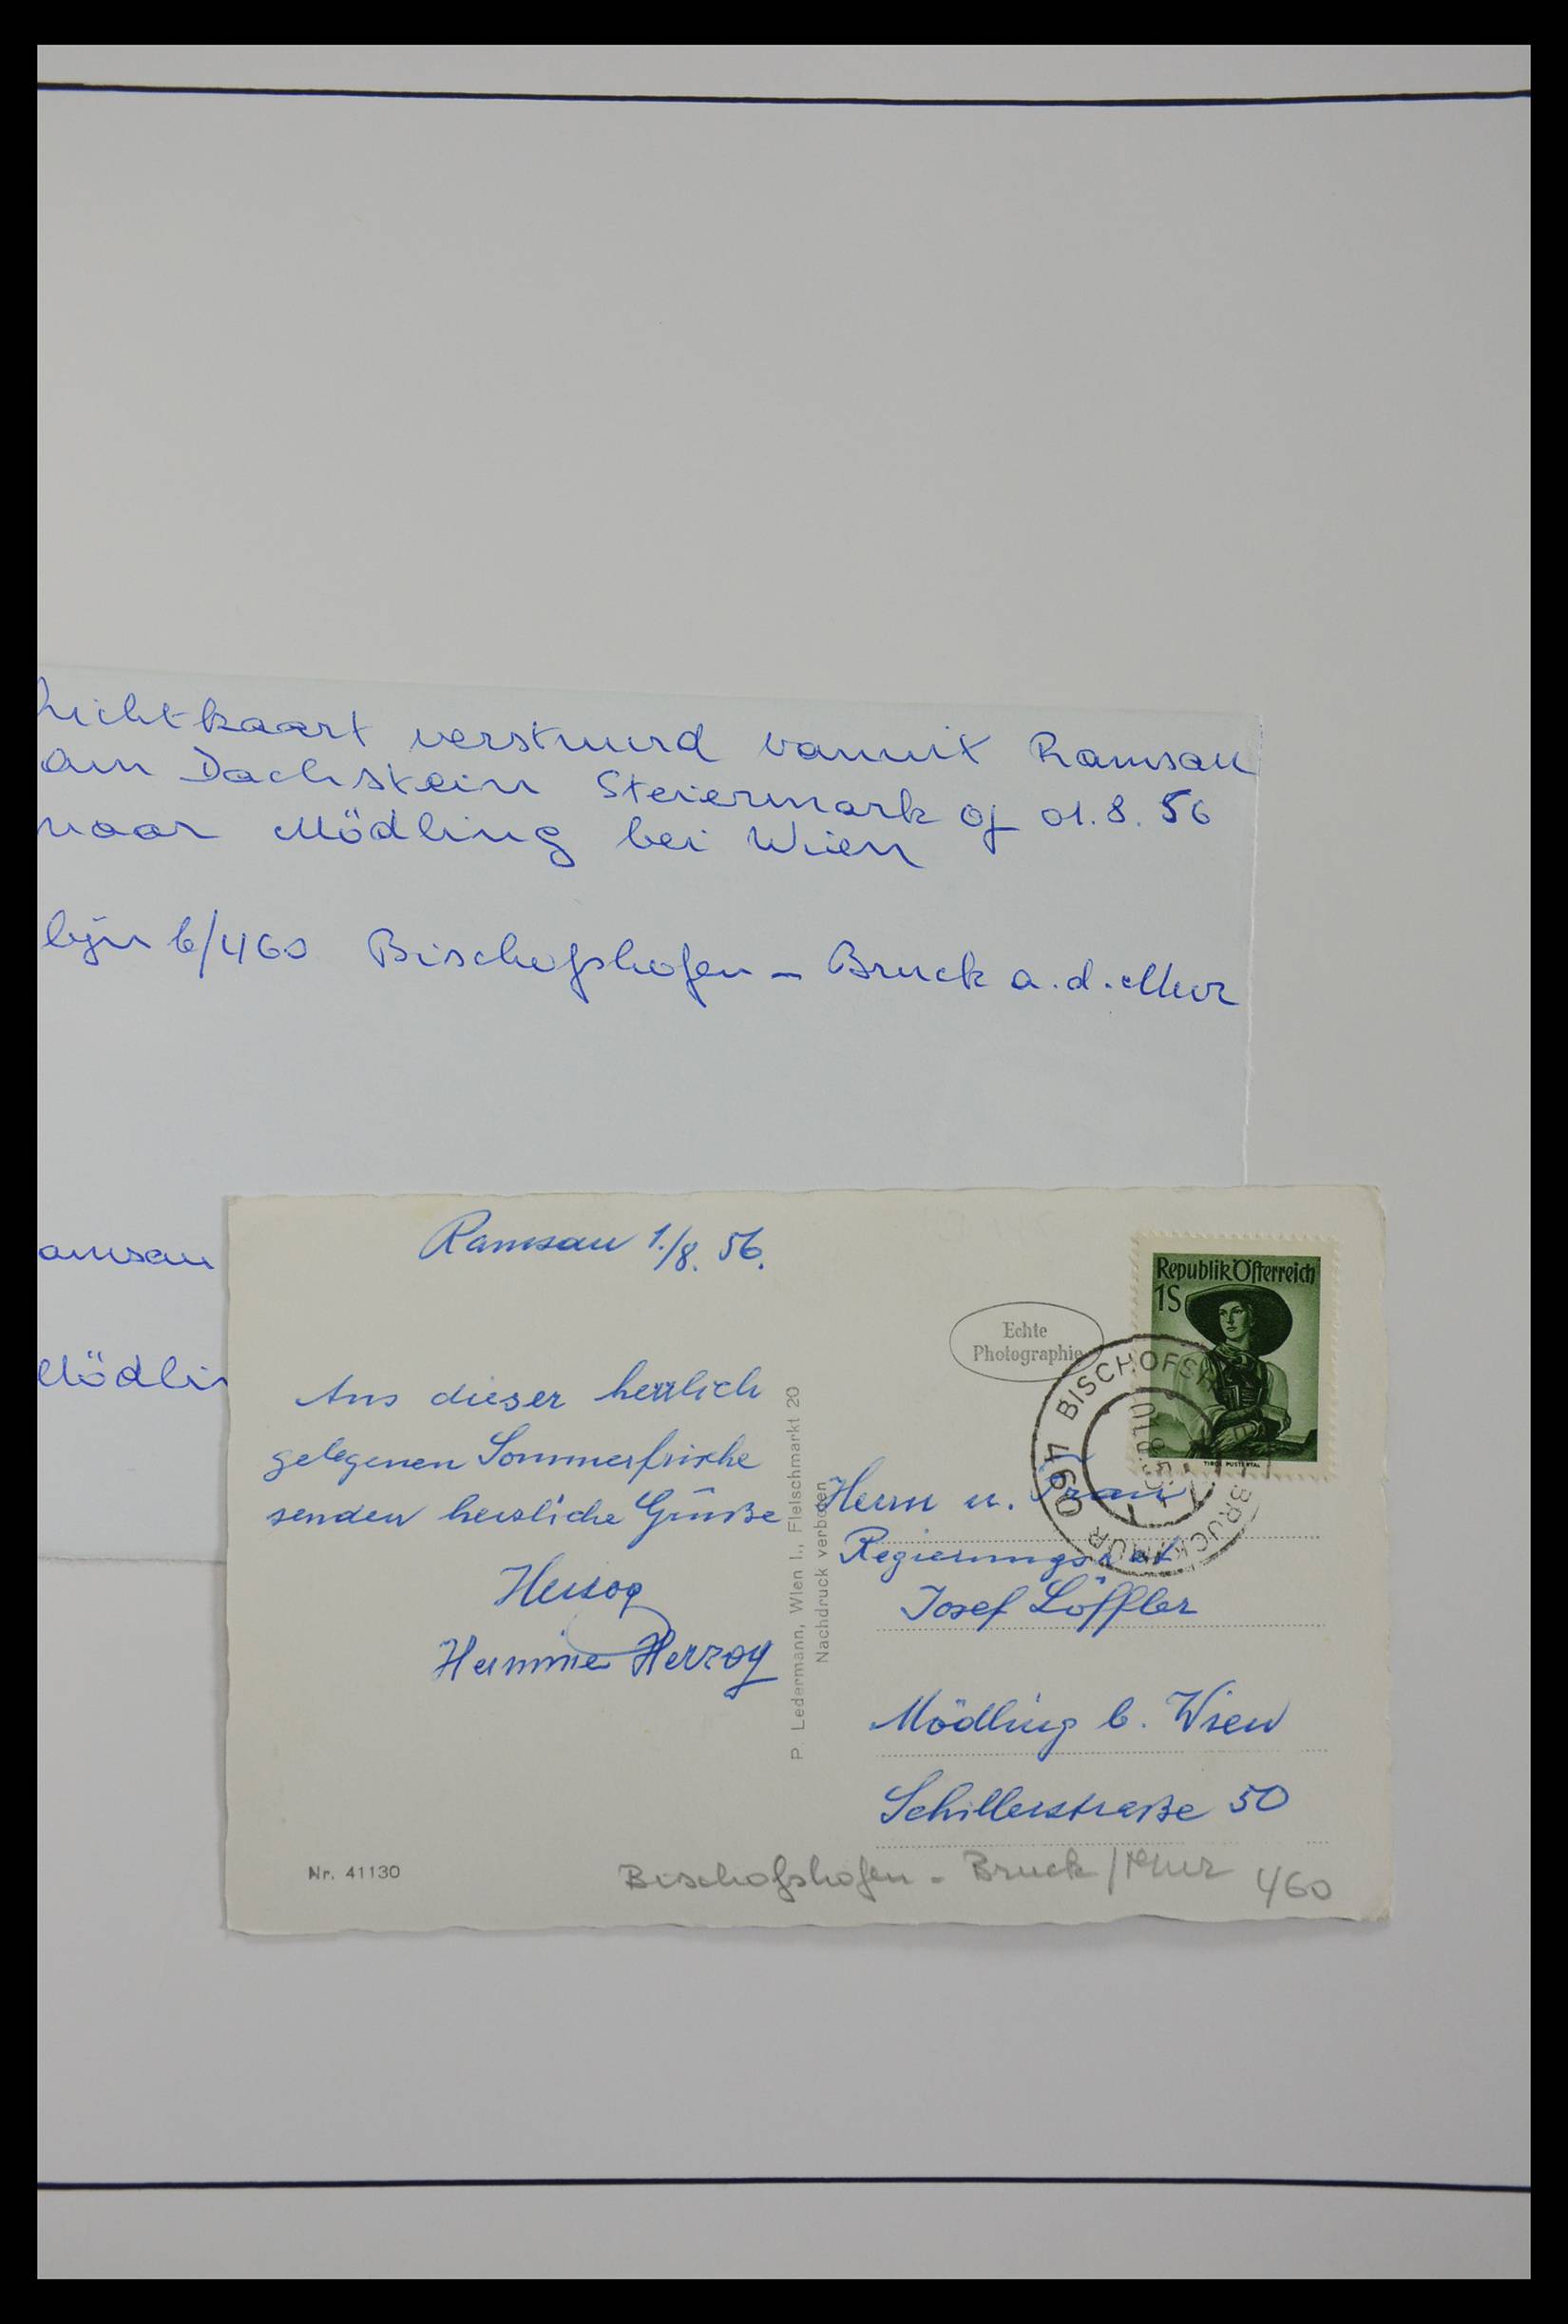 Lichtkaart verstuurd vanuit Ramsau
am Dachstein Steiermark op 01.8.56
naar Mödling bei Wien
lijn b/460 Bischofshofen - Bruck a.d. Mur
amsau
Mödlin
Ramsau 1./8. 56.
Aus dieser herrlich
gelegenen Sommerfrische
senden herzliche Grüße
Herzog
Hermine Herzog
Nr. 41130
P. Ledermann, Wien I., Fleischmarkt 20
Nachdruck verboten
Echte
Photographie
Republik Österreich
1S
TIROL PUSTERTAL
460 BISCHOFSH
BRUCK
MUR
Herrn u. Frau
Regierungsrat
Josef Löffler
Mödling b. Wien
Schillerstraße 50
Bischofshofen - Bruck/Mur 460